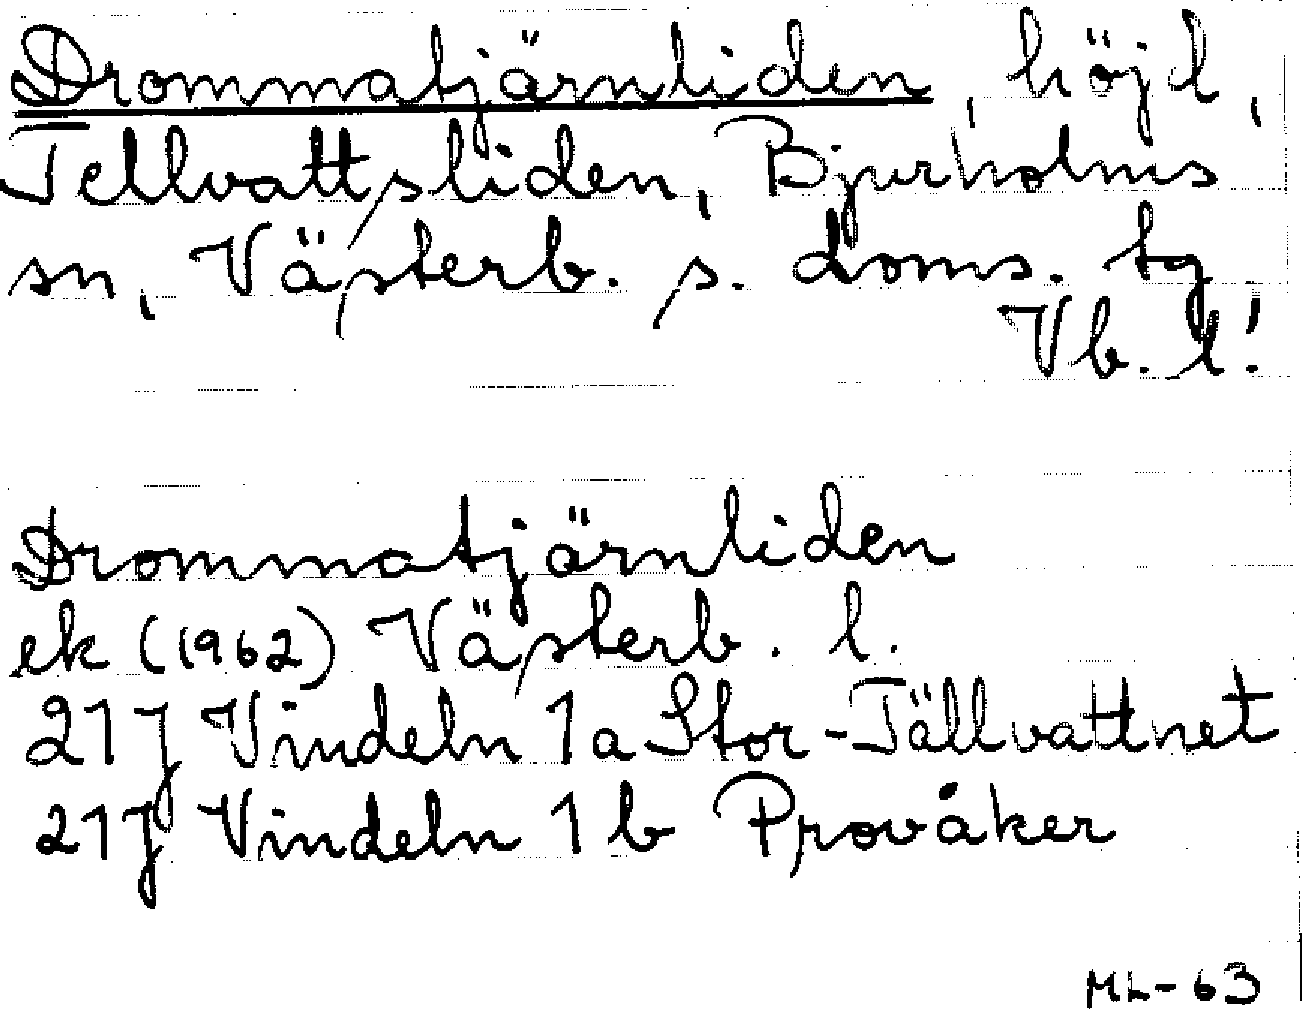 Drommatjärnliden, höjd,
Tellvattsliden, Bjurholms
sn, Västerb. s. Doms. tg
Vb. l!
Drommatjärnliden
ek (1962) Västerb. l.
21J Vindeln 1a Stor-Tällvattnet
21J Vindeln 1b Provåker
ML-63